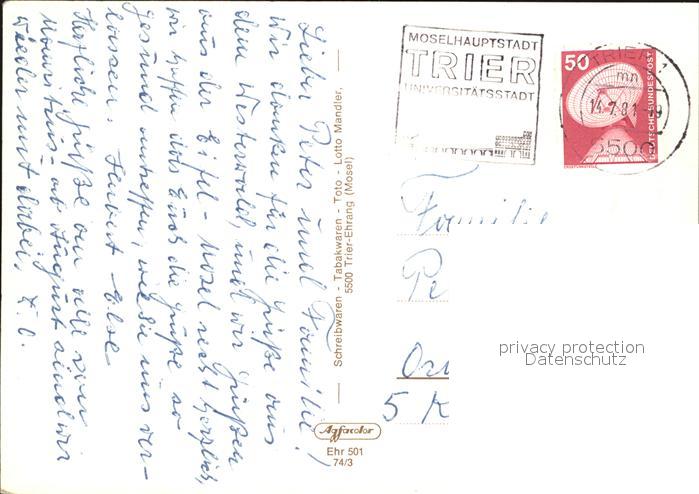 Lieber Peter und Familie!
Wir danken für die Grüße aus
dem Westerwald, und wir Grüßen
aus der Eifel-Mosel recht herzlich,
wir hoffen das Euch die Grüße so
gesund antreffen, wie sie uns ver-
lassen. Hubert Else
Herzliche Grüße an alle von
ab August sind wir
wieder mit dabei,
Schreibwaren - Tabakwaren - Toto - Lotto Mandler,
5500 Trier-Ehrang (Mosel)
Agfacolor
Ehr 501
74/3
MOSELHAUPTSTADT
TRIER
UNIVERSITÄTSSTADT
50
DEUTSCHE BUNDESPOST
TRIER 1
mn
14.7.81
5500
Familie
Pe
5 K
privacy protection
Datenschutz